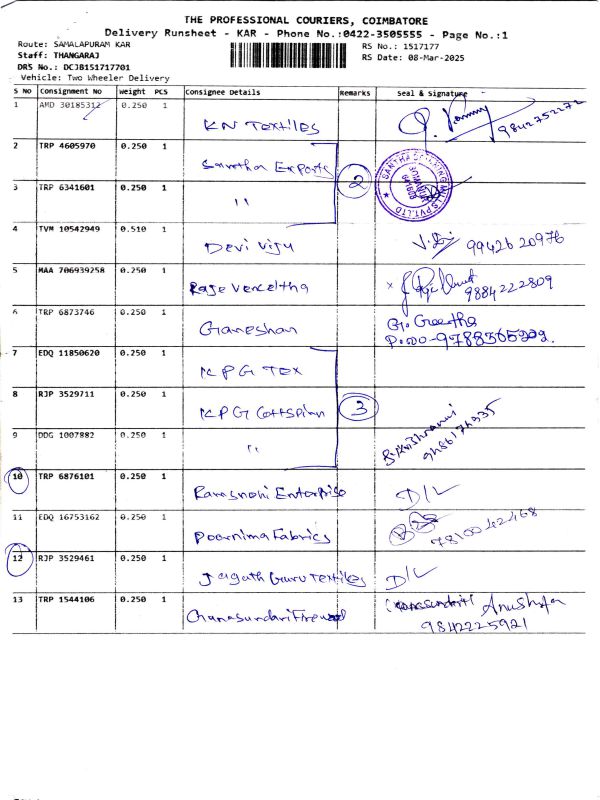 THE PROFESSIONAL COURIERS, COIMBATORE
Delivery Runsheet - KAR - Phone No.:0422-3505555 - Page No.:1
Route: SAMALAPURAM KAR
RS No.: 1517177
Staff: THANGARAJ
RS Date: 08-Mar-2025
DRS No.: DCJB151717701
Vehicle: Two Wheeler Delivery
S NO Consignment No Weight PCS Consignee Details Remarks Seal & Signature
1 AMD 30185312 0.250 1 KN Textiles 9842752272
2 TRP 4605970 0.250 1 Santha Exports
2
3 TRP 6341601 0.250 1 "
4 TVM 10542949 0.510 1 Devi Viju 9942620976
5 MAA 706939258 0.250 1 9884222809
6 TRP 6873746 0.250 1 Ganeshan G. Geetha
7 EDQ 11850620 0.250 1 KPG Tex
8 RJP 3529711 0.250 1 KPG Cottspinn
3
9 DDG 1007882 0.250 1 "
10 TRP 6876101 0.250 1 D/L
11 EDQ 16753162 0.250 1 Poornima Fabrics 7810042468
12 RJP 3529461 0.250 1 Jagath Guru Textiles D/L
13 TRP 1544106 0.250 1
9842225921